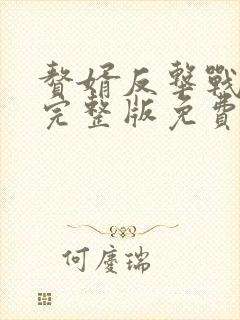 贅婿反擊戰
完整版免費
何慶瑞